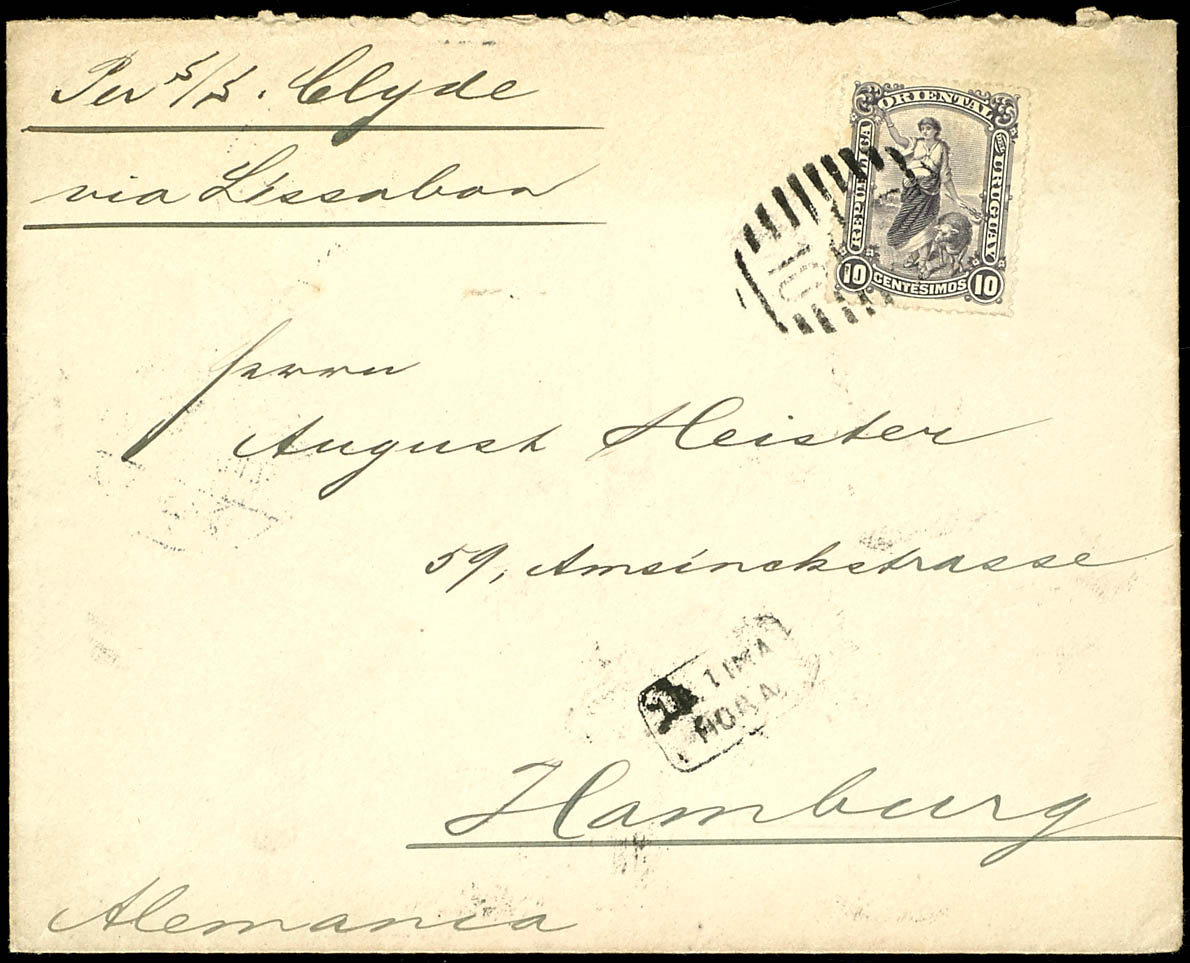 Per S/S. Clyde
via Lissabon
REPUBLICA ORIENTAL DEL URUGUAY
10 CENTÉSIMOS 10
Herrn
August Heister
59, Amsinckstrasse
ULTIMA
HORA
Hamburg
Alemania